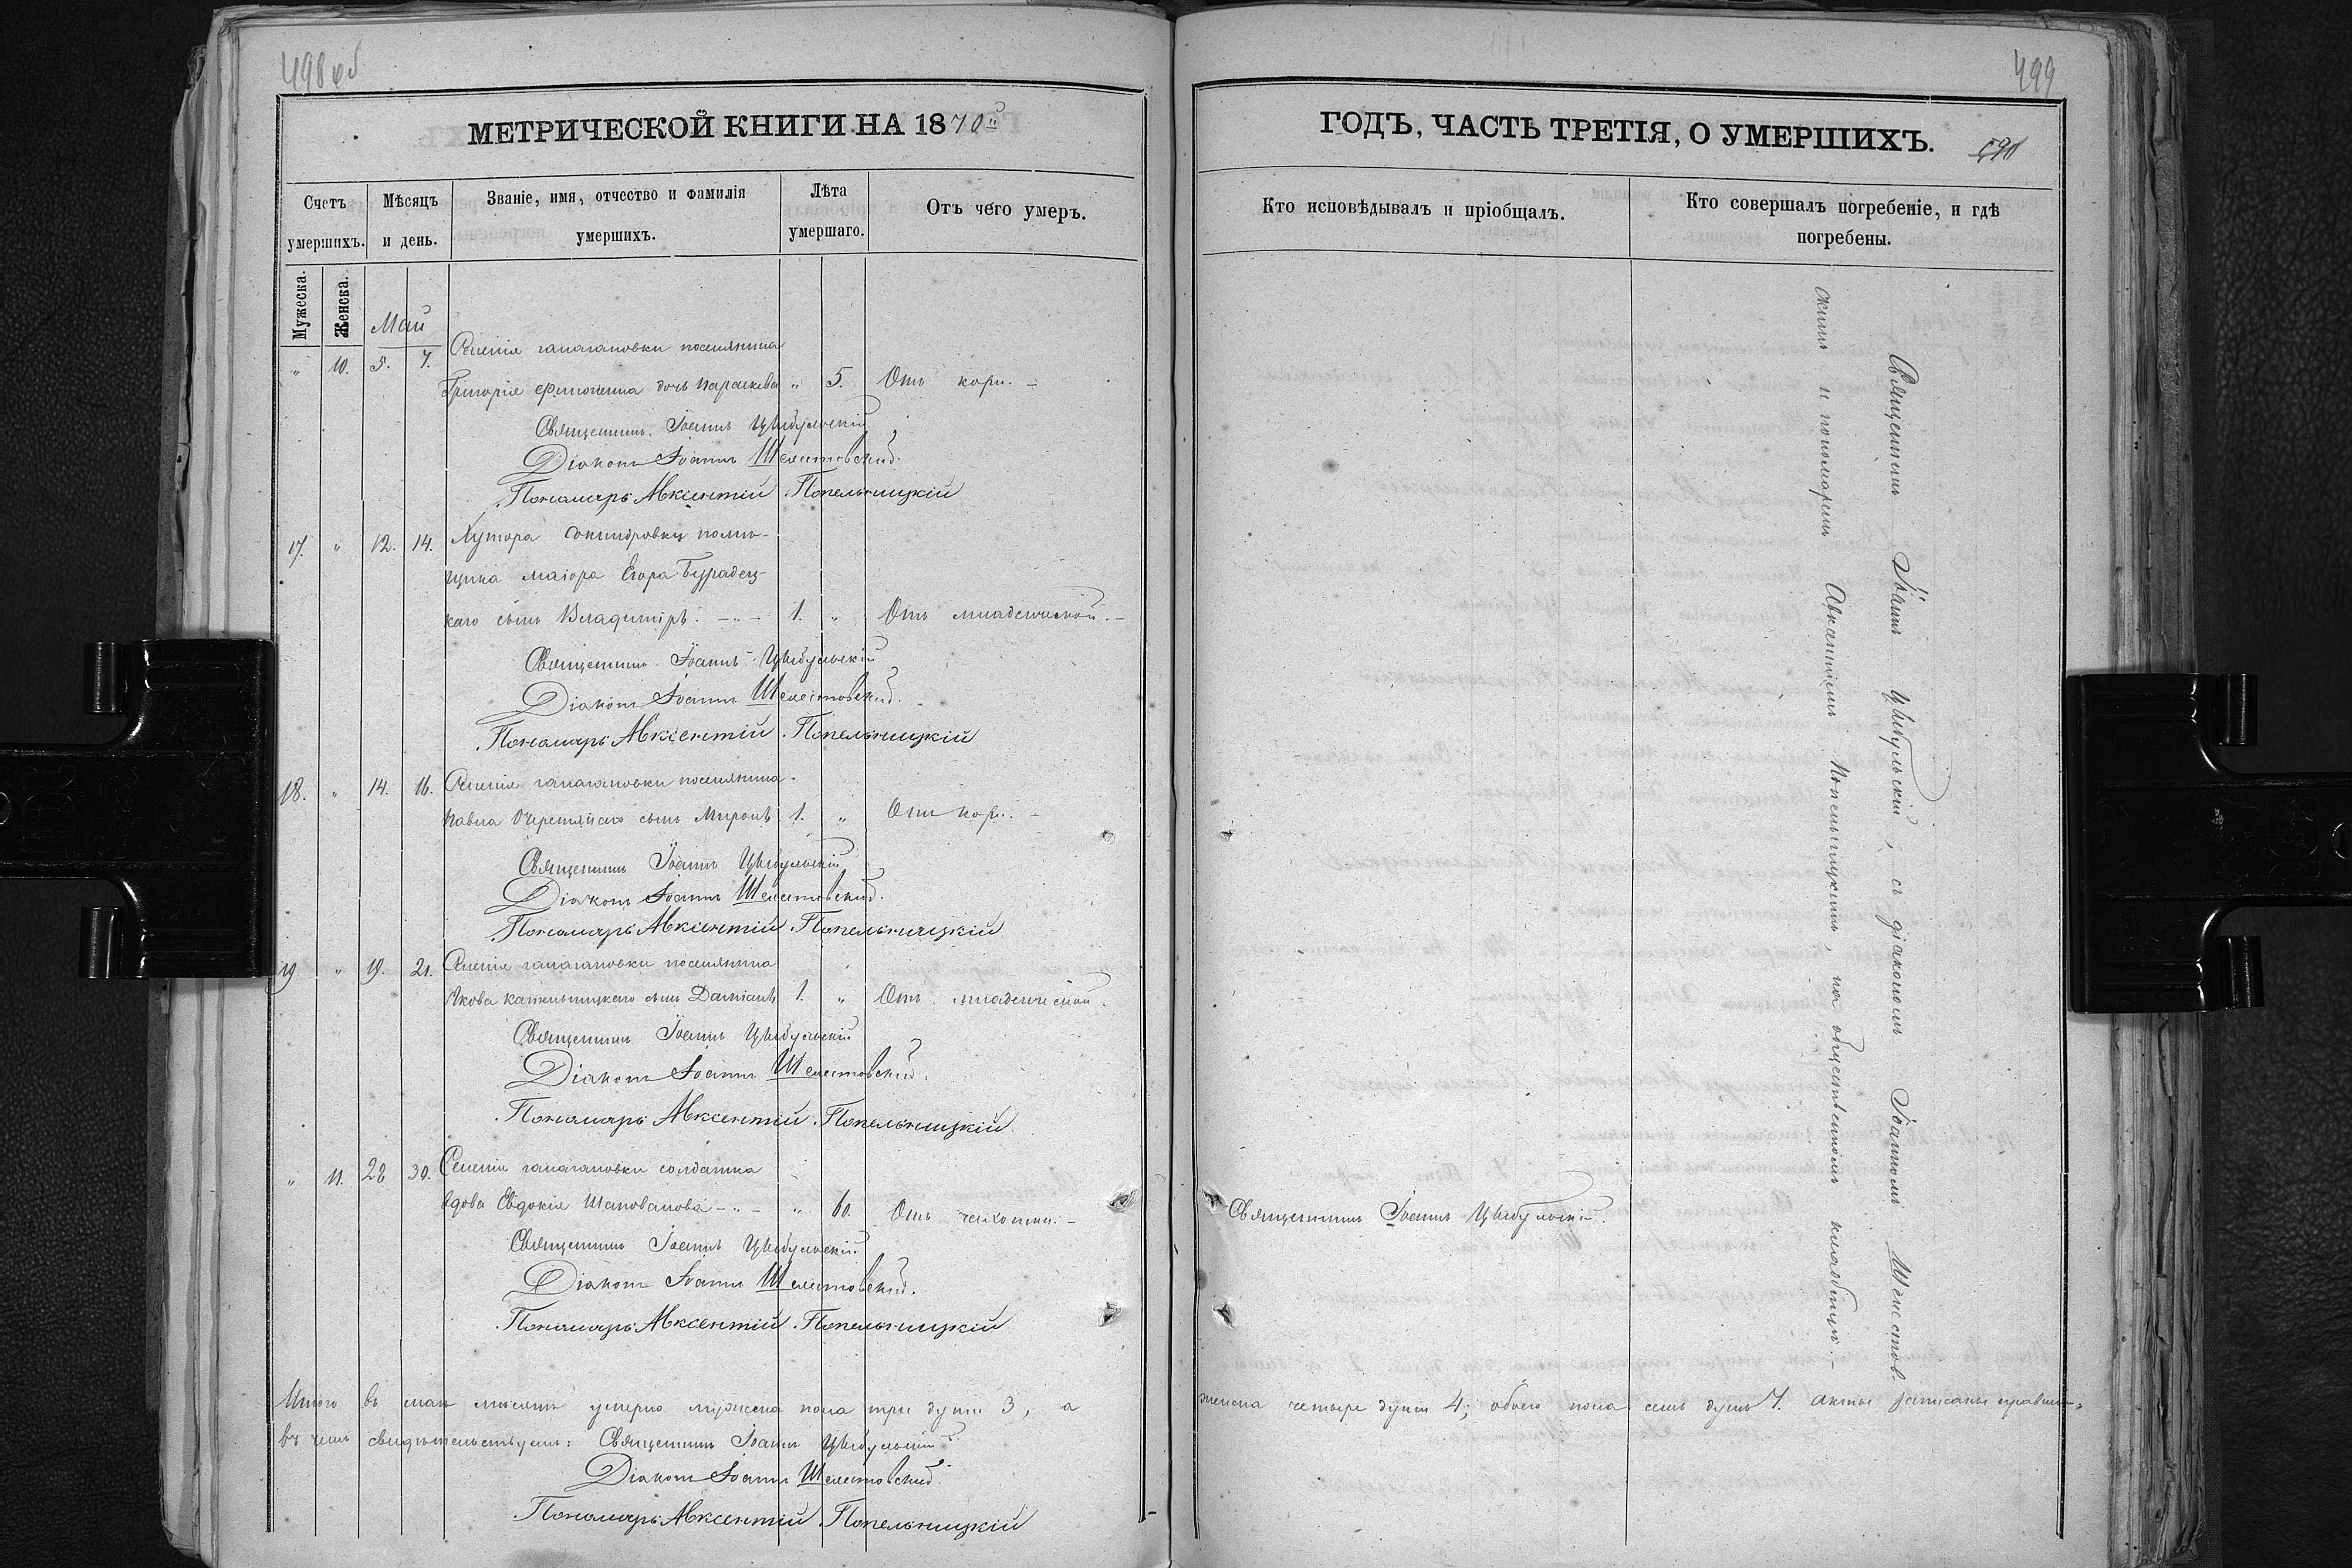 498 об
МЕТРИЧЕСКОЙ КНИГИ НА 1870й
Счетъ умершихъ.
Мѣсяцъ и день.
Званіе, имя, отчество и фамилія умершихъ.
Лѣта умершаго.
Отъ чего умеръ.
Мужеска.
Женска.
Май
Селенія
поселянина
„ 10. 5. 7. Григорія дочь Параскева „ 5. Отъ кори. –
Священникъ Іоаннъ Цыбульскій
Діаконъ Іоаннъ Шелестовскій.
Пономарь Авксентій Попельницкій
17. „ 12. 14. Хутора помѣ-
щика маіора Егора
каго сынъ Владиміръ. – „ – 1. „ Отъ младенческой. –
Священникъ Іоаннъ Цыбульскій
Діаконъ Іоаннъ Шелестовскій.
Пономарь Авксентій Попельницкій
18. „ 14. 16. Селенія поселянина
Павла сынъ Миронъ 1. „ Отъ кори. –
Священникъ Іоаннъ Цыбульскій
Діаконъ Іоаннъ Шелестовскій.
Пономарь Авксентій Попельницкій
19. „ 19. 21. Селенія поселянина
Якова сынъ Даміанъ 1. „ Отъ младенческой.
Священникъ Іоаннъ Цыбульскій
Діаконъ Іоаннъ Шелестовскій.
Пономарь Авксентій Попельницкій
„ 11. 28 30. Селенія солдатка
вдова Евдокія Шаповалова – „ – „ 60. Отъ чахотки. –
Священникъ Іоаннъ Цыбульскій
Діаконъ Іоаннъ Шелестовскій.
Пономарь Авксентій Попельницкій
Итого въ маѣ мѣсяцѣ умерло мужеска пола три души 3, а
въ чемъ свидѣтельствуемъ: Священникъ Іоаннъ Цыбульскій
Діаконъ Іоаннъ Шелестовскій.
Пономарь Авксентій Попельницкій
499
ГОДЪ, ЧАСТЬ ТРЕТІЯ, О УМЕРШИХЪ.
Кто исповѣдывалъ и пріобщалъ.
Кто совершалъ погребеніе, и гдѣ погребены.
Священникъ Іоаннъ Цыбульскій, съ діакономъ Іоанномъ Шелестов-
скимъ и пономаремъ Авксентіемъ Попельницкимъ, на общественномъ кладбищѣ. –
Священникъ Іоаннъ Цыбульскій.
женска четыре души 4; обоего пола семь душъ 7. акты записаны